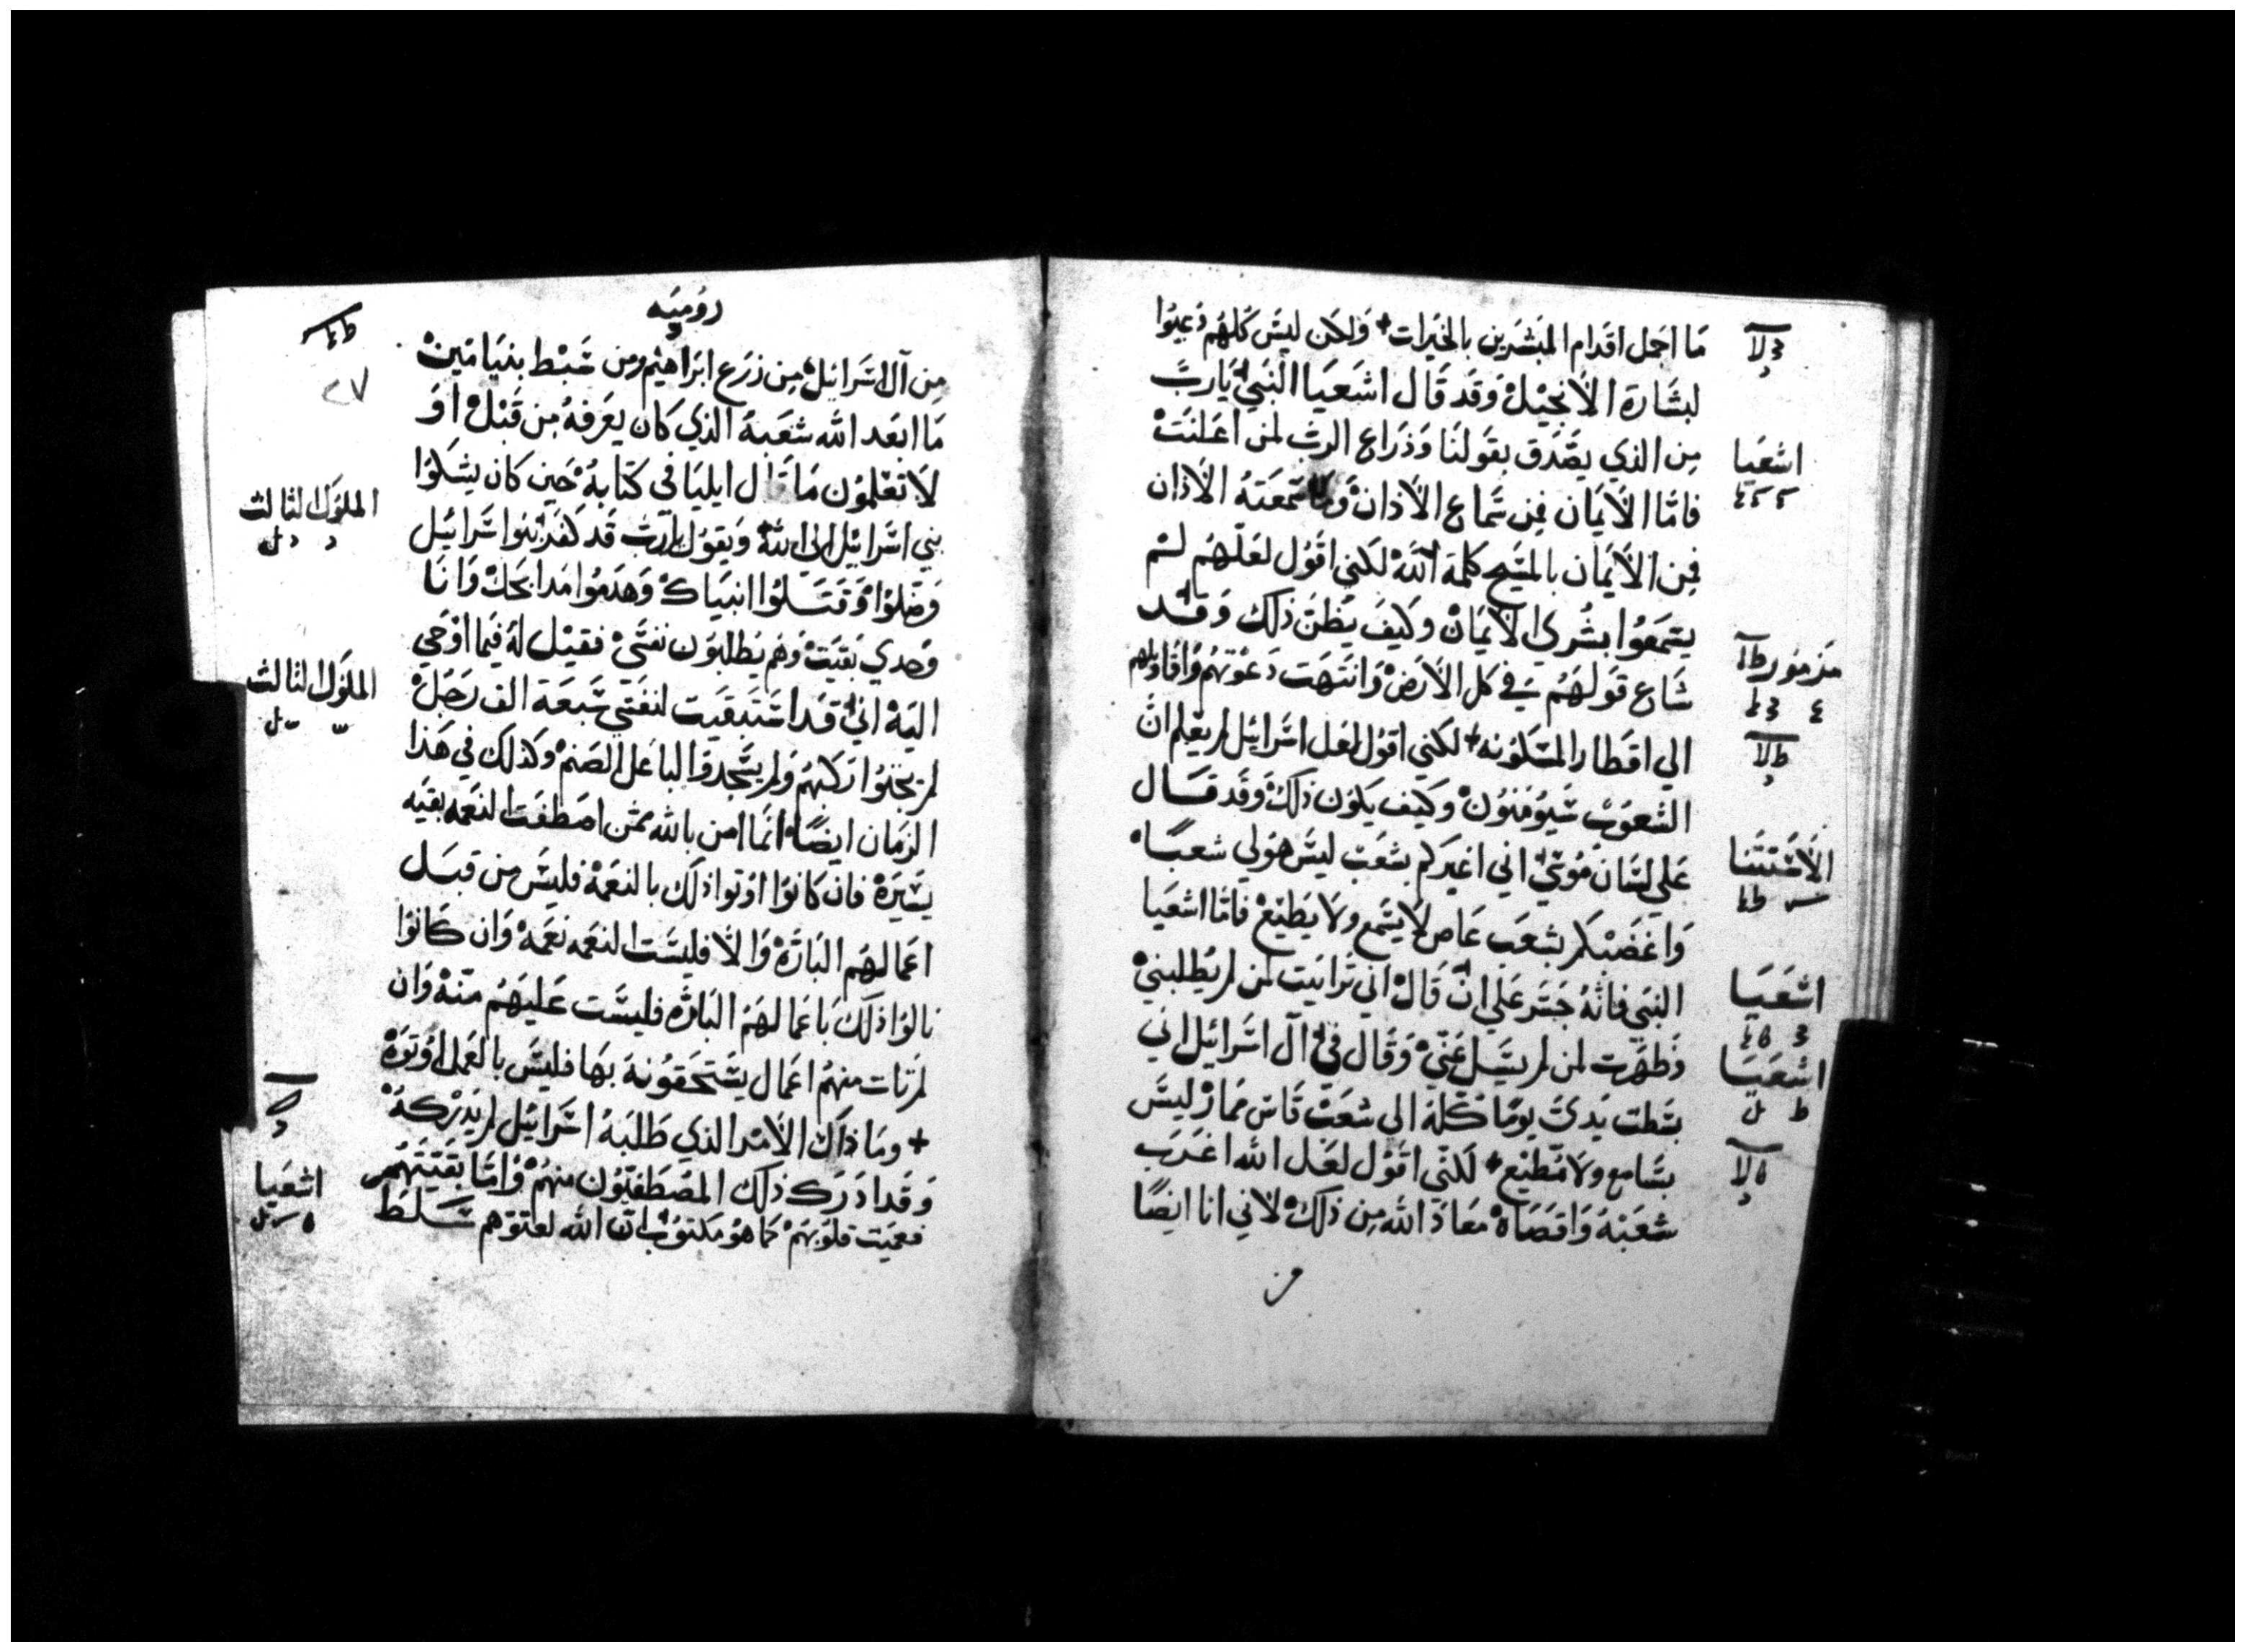 ما اجمل اقدام المبشرين بالخيرات + ولكن ليس كلهم ذعنوا
لبشارة الانجيل وقد قال اشعيا النبي يا رب
من الذي يصدق بقولنا وذراع الرب لمن اعلنت
فاما الايمان فمن سماع الاذان وما سمعته الاذان
فمن الايمان بالمسيح كلمة الله لكني اقول لعلهم لم
يسمعوا بشرى الايمان وكيف يظن ذلك وقد
شاع قولهم في كل الارض وانتهت دعوتهم واقاويلهم
الي اقطار المسكونه + لكني اقول لعل اسرائيل لم يعلم ان
الشعوب سيومنون وكيف يكون ذلك وقد قال
علي لسان موسي اني اغيركم بشعب ليس هو لي شعبا
واغضبكم بشعب عاص لا يسمع ولا يطيع فاما اشعيا
النبي فانه جسر علي ان قال اني ترائيت لمن لم يطلبني
وظهرت لمن لم يسيل عني وقال في آل اسرائيل اني
بسطت يدي يوما كله الي شعب قاس ممار ليس
بسامع ولا مطيع + لكني اقول لعل الله اغرب
شعبه واقصاه معاذ الله من ذلك لاني انا ايضا
من
اشعيا
مزمور
الاستثنا
اشعيا
اشعيا
روميه
٣٧
من آل اسرائيل من زرع ابراهيم ومن سبط بنيامين
ما ابعد الله شعبه الذي كان يعرفه من قبل او
لا تعلمون ما قال ايليا في كتابه حين كان يشكوا
بني اسرائيل الى الله ويقول يا رب قد كفر بنوا اسرائيل
وضلوا وقتلوا انبياك وهدموا مدابحك وانا
وحدي بقيت وهم يطلبون نفسي فقيل له فيما اوحي
اليه اني قد استبقيت لنفسي سبعة الف رجل
لم يجثوا ركبهم ولم يسجدوا لباعل الصنم وكذلك في هذا
الزمان ايضا انما امن بالله ممن اصطفت النعمه بقيه
يسيره فان كانوا اوتوا ذلك بالنعمة فليس من قبل
اعمالهم البارة والا فليست النعمه نعمه وان كانوا
نالوا ذلك باعمالهم البارة فليست عليهم منه وان
لم تات منهم اعمال يستحقونه بها فليس بالعمل اوتوه
+ وما ذاك الامر الذي طلبه اسرائيل لم يدركه
وقد ادرك ذلك المصطفيون منهم واما بقيتهم
فعميت قلوبهم كما هو مكتوب ان الله لعتوهم سلط
الملوك الثالث
الملوك الثالث
اشعيا